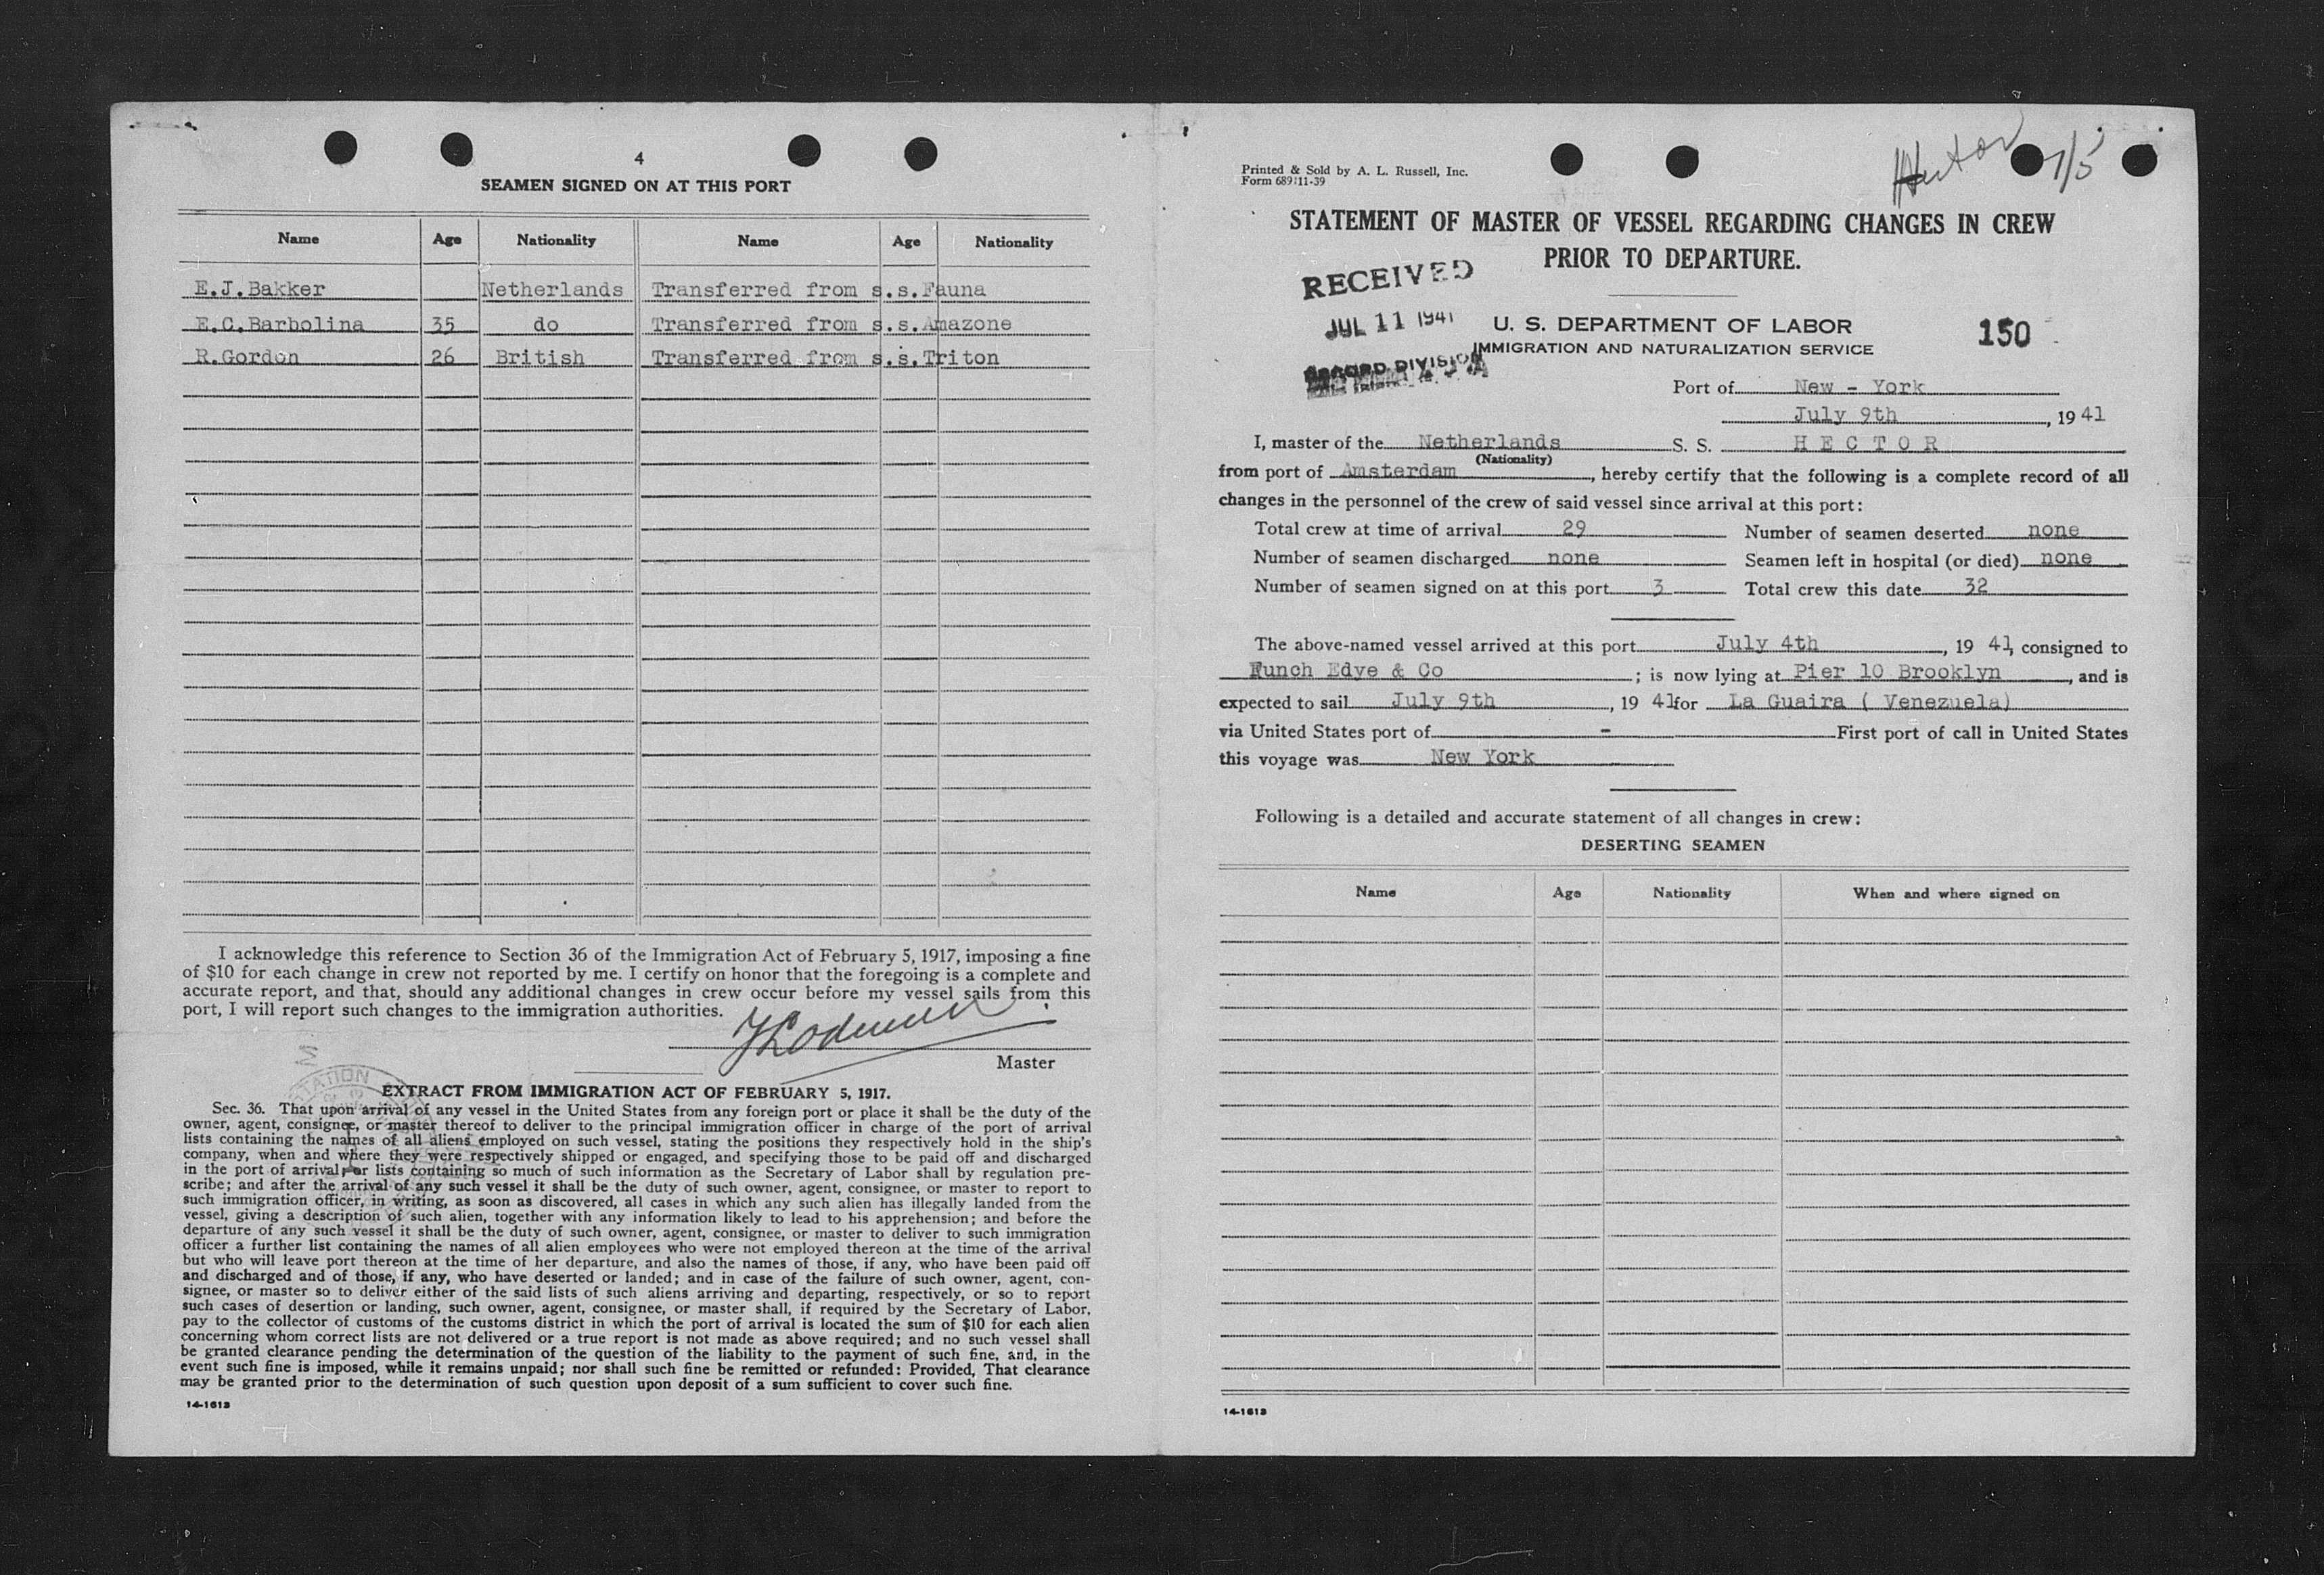 4
SEAMEN SIGNED ON AT THIS PORT
Name Age Nationality Name Age Nationality
E.J.Bakker Netherlands Transferred from s.s.Fauna
E.C.Barbolina 35 do Transferred from s.s.Amazone
R.Gordon 26 British Transferred from s.s.Triton
I acknowledge this reference to Section 36 of the Immigration Act of February 5, 1917, imposing a fine
of $10 for each change in crew not reported by me. I certify on honor that the foregoing is a complete and
accurate report, and that, should any additional changes in crew occur before my vessel sails from this
port, I will report such changes to the immigration authorities.
Master
EXTRACT FROM IMMIGRATION ACT OF FEBRUARY 5, 1917.
Sec. 36. That upon arrival of any vessel in the United States from any foreign port or place it shall be the duty of the
owner, agent, consignee, or master thereof to deliver to the principal immigration officer in charge of the port of arrival
lists containing the names of all aliens employed on such vessel, stating the positions they respectively hold in the ship's
company, when and where they were respectively shipped or engaged, and specifying those to be paid off and discharged
in the port of arrival; or lists containing so much of such information as the Secretary of Labor shall by regulation pre-
scribe; and after the arrival of any such vessel it shall be the duty of such owner, agent, consignee, or master to report to
such immigration officer, in writing, as soon as discovered, all cases in which any such alien has illegally landed from the
vessel, giving a description of such alien, together with any information likely to lead to his apprehension; and before the
departure of any such vessel it shall be the duty of such owner, agent, consignee, or master to deliver to such immigration
officer a further list containing the names of all alien employees who were not employed thereon at the time of the arrival
but who will leave port thereon at the time of her departure, and also the names of those, if any, who have been paid off
and discharged and of those, if any, who have deserted or landed; and in case of the failure of such owner, agent, con-
signee, or master so to deliver either of the said lists of such aliens arriving and departing, respectively, or so to report
such cases of desertion or landing, such owner, agent, consignee, or master shall, if required by the Secretary of Labor,
pay to the collector of customs of the customs district in which the port of arrival is located the sum of $10 for each alien
concerning whom correct lists are not delivered or a true report is not made as above required; and no such vessel shall
be granted clearance pending the determination of the question of the liability to the payment of such fine, and, in the
event such fine is imposed, while it remains unpaid; nor shall such fine be remitted or refunded: Provided, That clearance
may be granted prior to the determination of such question upon deposit of a sum sufficient to cover such fine.
14-1613
Printed & Sold by A. L. Russell, Inc.
Form 689 11-39
7/5
STATEMENT OF MASTER OF VESSEL REGARDING CHANGES IN CREW
PRIOR TO DEPARTURE.
RECEIVED
JUL 11 1941
RECORD DIVISION
U. S. DEPARTMENT OF LABOR
IMMIGRATION AND NATURALIZATION SERVICE
150
Port of New - York
July 9th, 1941
I, master of the Netherlands S. S. H E C T O R
(Nationality)
from port of Amsterdam, hereby certify that the following is a complete record of all
changes in the personnel of the crew of said vessel since arrival at this port:
Total crew at time of arrival 29 Number of seamen deserted none
Number of seamen discharged none Seamen left in hospital (or died) none
Number of seamen signed on at this port 3 Total crew this date 32
The above-named vessel arrived at this port July 4th, 19 41, consigned to
Funch Edye & Co; is now lying at Pier 10 Brooklyn, and is
expected to sail July 9th, 19 41 for La Guaira ( Venezuela)
via United States port of - First port of call in United States
this voyage was New York
Following is a detailed and accurate statement of all changes in crew:
DESERTING SEAMEN
Name Age Nationality When and where signed on
14-1613